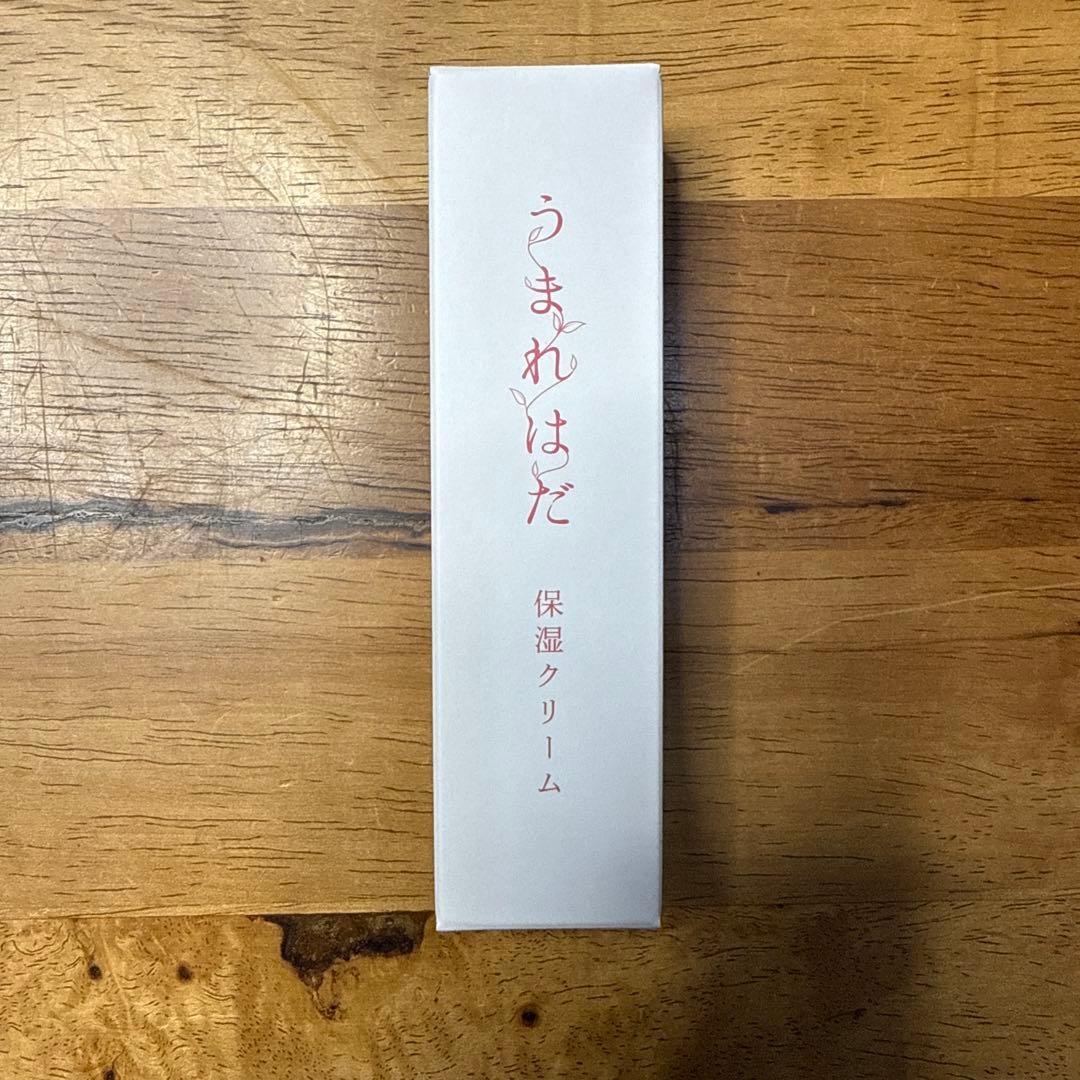 うまれはだ
保湿クリーム